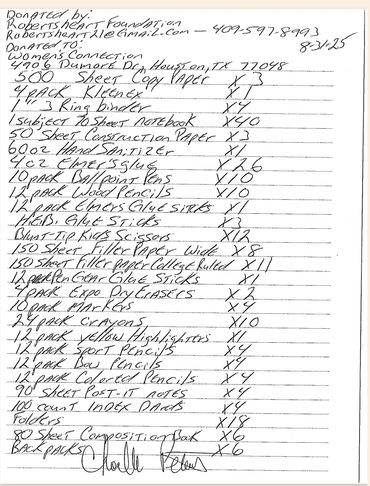 Donated by:
Robertsheart Foundation
Robertsheart21@Gmail.com — 409-597-8993
8-31-25
Donated To:
Women's Connection
4906 Dumore Dr, Houston, TX 77048
500 Sheet Copy Paper X 3
4 pack Kleenex X 1
1" 3 Ring binder X4
1 subject 70 Sheet notebook X40
50 Sheet Construction Paper X3
60oz Hand Sanitizer X1
4oz Elmer's glue X26
10 pack Ballpoint Pens X10
12 pack Wood Pencils X10
12 pack Elmers Glue Sticks X1
Glue Sticks X3
Blunt-Tip Kids Scissors X12
150 Sheet Filler Paper Wide X8
150 Sheet Filler paper College Ruled X11
12 pack Pen Gear Glue Sticks X1
4 pack Expo Dry Erasers X2
10 pack Markers X4
24 pack Crayons X10
12 pack yellow Highlighters X1
12 pack Sport Pencils X4
12 pack Bow Pencils X4
12 pack Colored Pencils X4
90 Sheet Post-it notes X4
100 count Index X4
Folders X18
80 Sheet Composition Book X6
Backpacks X6